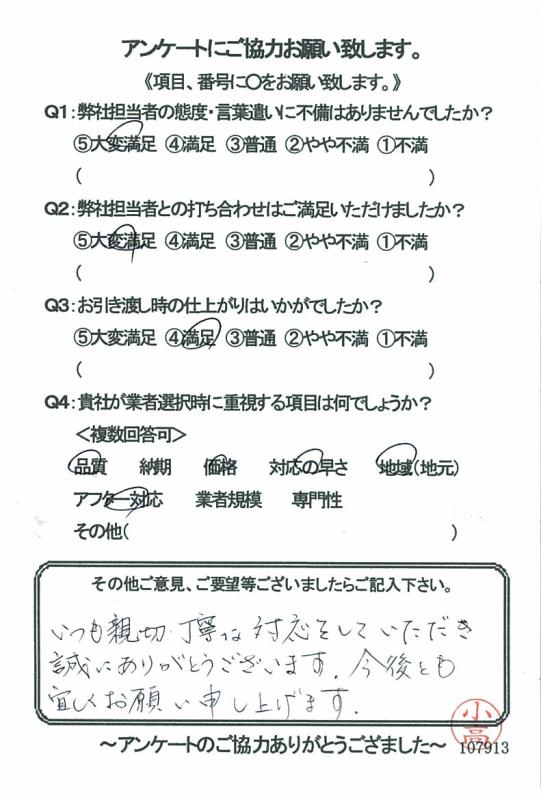 アンケートにご協力お願い致します。
《項目、番号に〇をお願い致します。》
Q1:弊社担当者の態度・言葉遣いに不備はありませんでしたか?
⑤大変満足 ④満足 ③普通 ②やや不満 ①不満
( )
Q2:弊社担当者との打ち合わせはご満足いただけましたか?
⑤大変満足 ④満足 ③普通 ②やや不満 ①不満
( )
Q3:お引き渡し時の仕上がりはいかがでしたか?
⑤大変満足 ④満足 ③普通 ②やや不満 ①不満
( )
Q4:貴社が業者選択時に重視する項目は何でしょうか?
<複数回答可>
品質 納期 価格 対応の早さ 地域(地元)
アフター対応 業者規模 専門性
その他( )
その他ご意見、ご要望等ございましたらご記入下さい。
いつも親切・丁寧な対応をしていただき
誠にありがとうございます。今後とも
宜しくお願い申し上げます。
小高
~アンケートのご協力ありがとうござました~ 107913